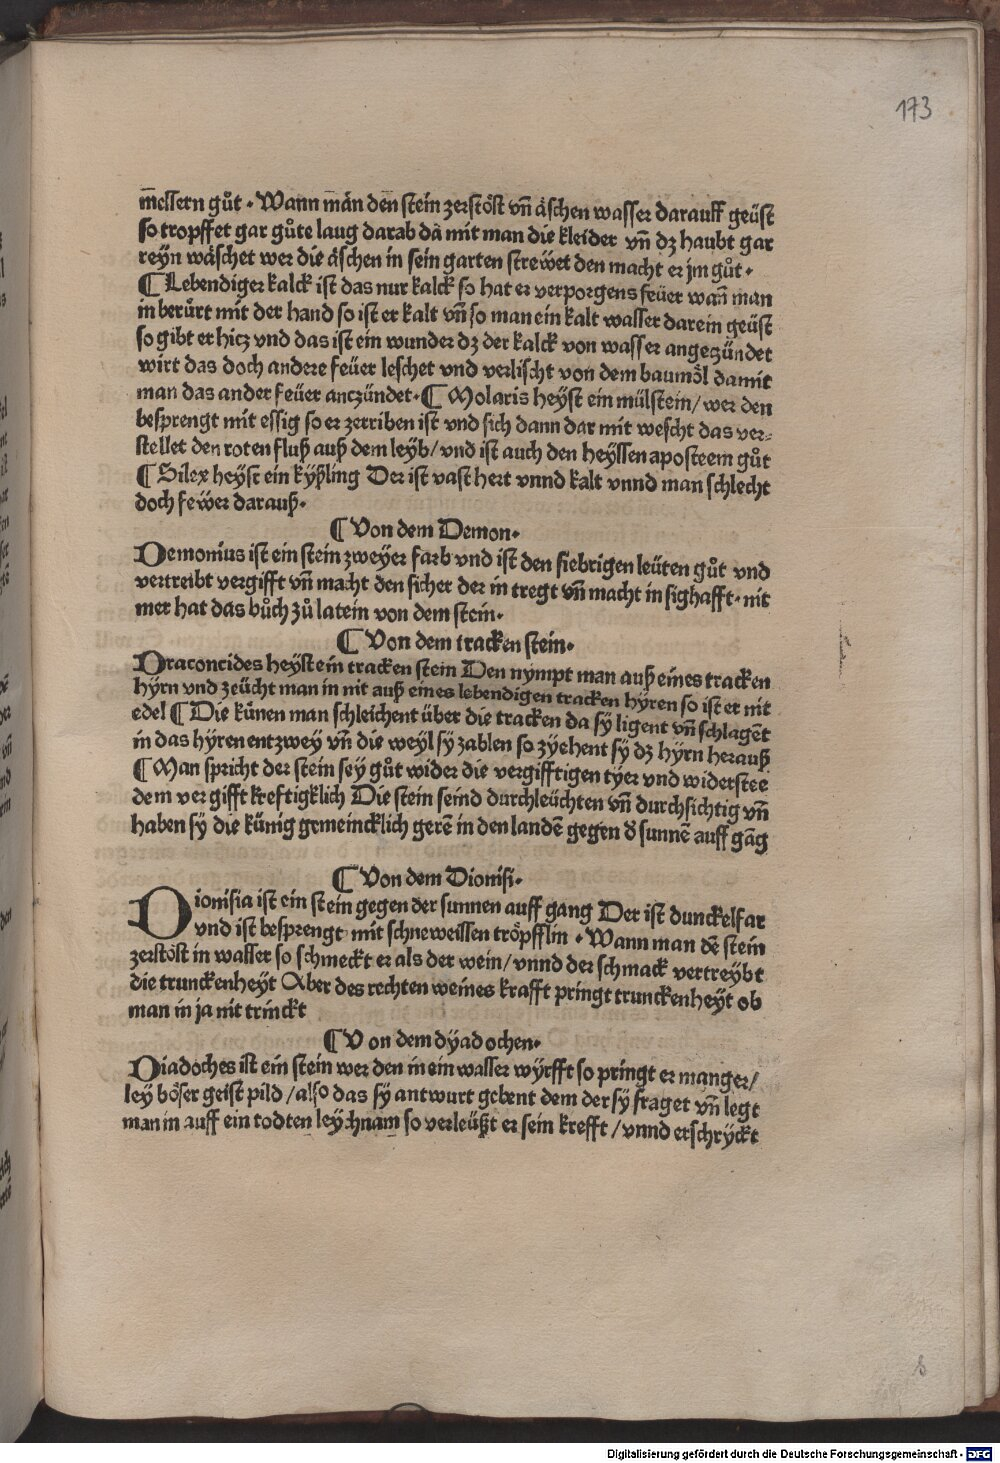 173
m̄essern gůt · Wann mān den stein zerstöst vn̄ äschen wasser darauff geüst
so tropffet gar gůte laug darab dā mit man die kleider vn̄ dz haubt gar
reyn wäschet wer die äschen in sein garten strewet den macht er jm gůt ·
¶ Lebendiger kalck ist das nur kalck so hat er verporgens feüer wan̄ man
in berůrt mit der hand so ist er kalt vn̄ so man ein kalt wasser darein geüst
so gibt er hicz vnd das ist ein wunder dz der kalck von wasser angeczündet
wirt das doch andere feüer leschet vnd verlischt von dem baumöl damit
man das ander feüer anczündet · ¶ Molaris heyst ein mülstein / wer den
besprengt mit essig so er zerriben ist vnd sich dann dar mit wescht das ver⸗
stellet den roten fluß auß dem leyb / vnd ist auch den heyssen aposteem gůt
¶ Silex heyst ein kÿßling Der ist vast hert vnnd kalt vnnd man schlecht
doch fewer darauß ·
¶ Von dem Demon ·
Demonius ist ein stein zweyer farb vnd ist den fiebrigen leüten gůt vnd
vertreibt vergifft vn̄ macht den sicher der in tregt vn̄ macht in sighafft · nit
mer hat das bůch zů latein von dem stein ·
¶ Von dem tracken stein ·
Draconcides heyst ein tracken stein Den nympt man auß eines tracken
hÿrn vnd zeücht man in nit auß eines lebendigen tracken hÿren so ist er nit
edel ¶ Die künen man schleichent über die tracken da sÿ ligent vn̄ schlagēt
in das hÿren entzwey vn̄ die weyl sÿ zablen so zÿehent sÿ dz hÿrn herauß
¶ Man spricht der stein sey gůt wider die vergifftigen tÿer vnd widerstee
dem vergifft kreftigklich Die stein seind durchleüchten vn̄ durchsichtig vn̄
haben sÿ die künig gemeincklich gerē in den landē gegen d̓ sunnē auff gāg
¶ Von dem Dionisi ·
Dionisia ist ein stein gegen der sunnen auff gang Der ist dunckelfar
vnd ist besprengt mit schneweissen tröpfflin · Wann man dē stein
zerstöst in wasser so schmeckt er als der wein / vnnd der schmack vertreybt
die trunckenheyt Aber des rechten weines krafft pringt trunckenheyt ob
man in ja nit trinckt
¶ Von dem dÿadochen ·
Diadoches ist ein stein wer den in ein wasser wÿrfft so pringt er manger /
ley böser geist pild / also das sÿ antwurt gebent dem der sÿ fraget vn̄ legt
man in auff ein todten leychnam so verleüßt er sein krefft / vnnd erschrÿckt
Digitalisierung gefördert durch die Deutsche Forschungsgemeinschaft - DFG